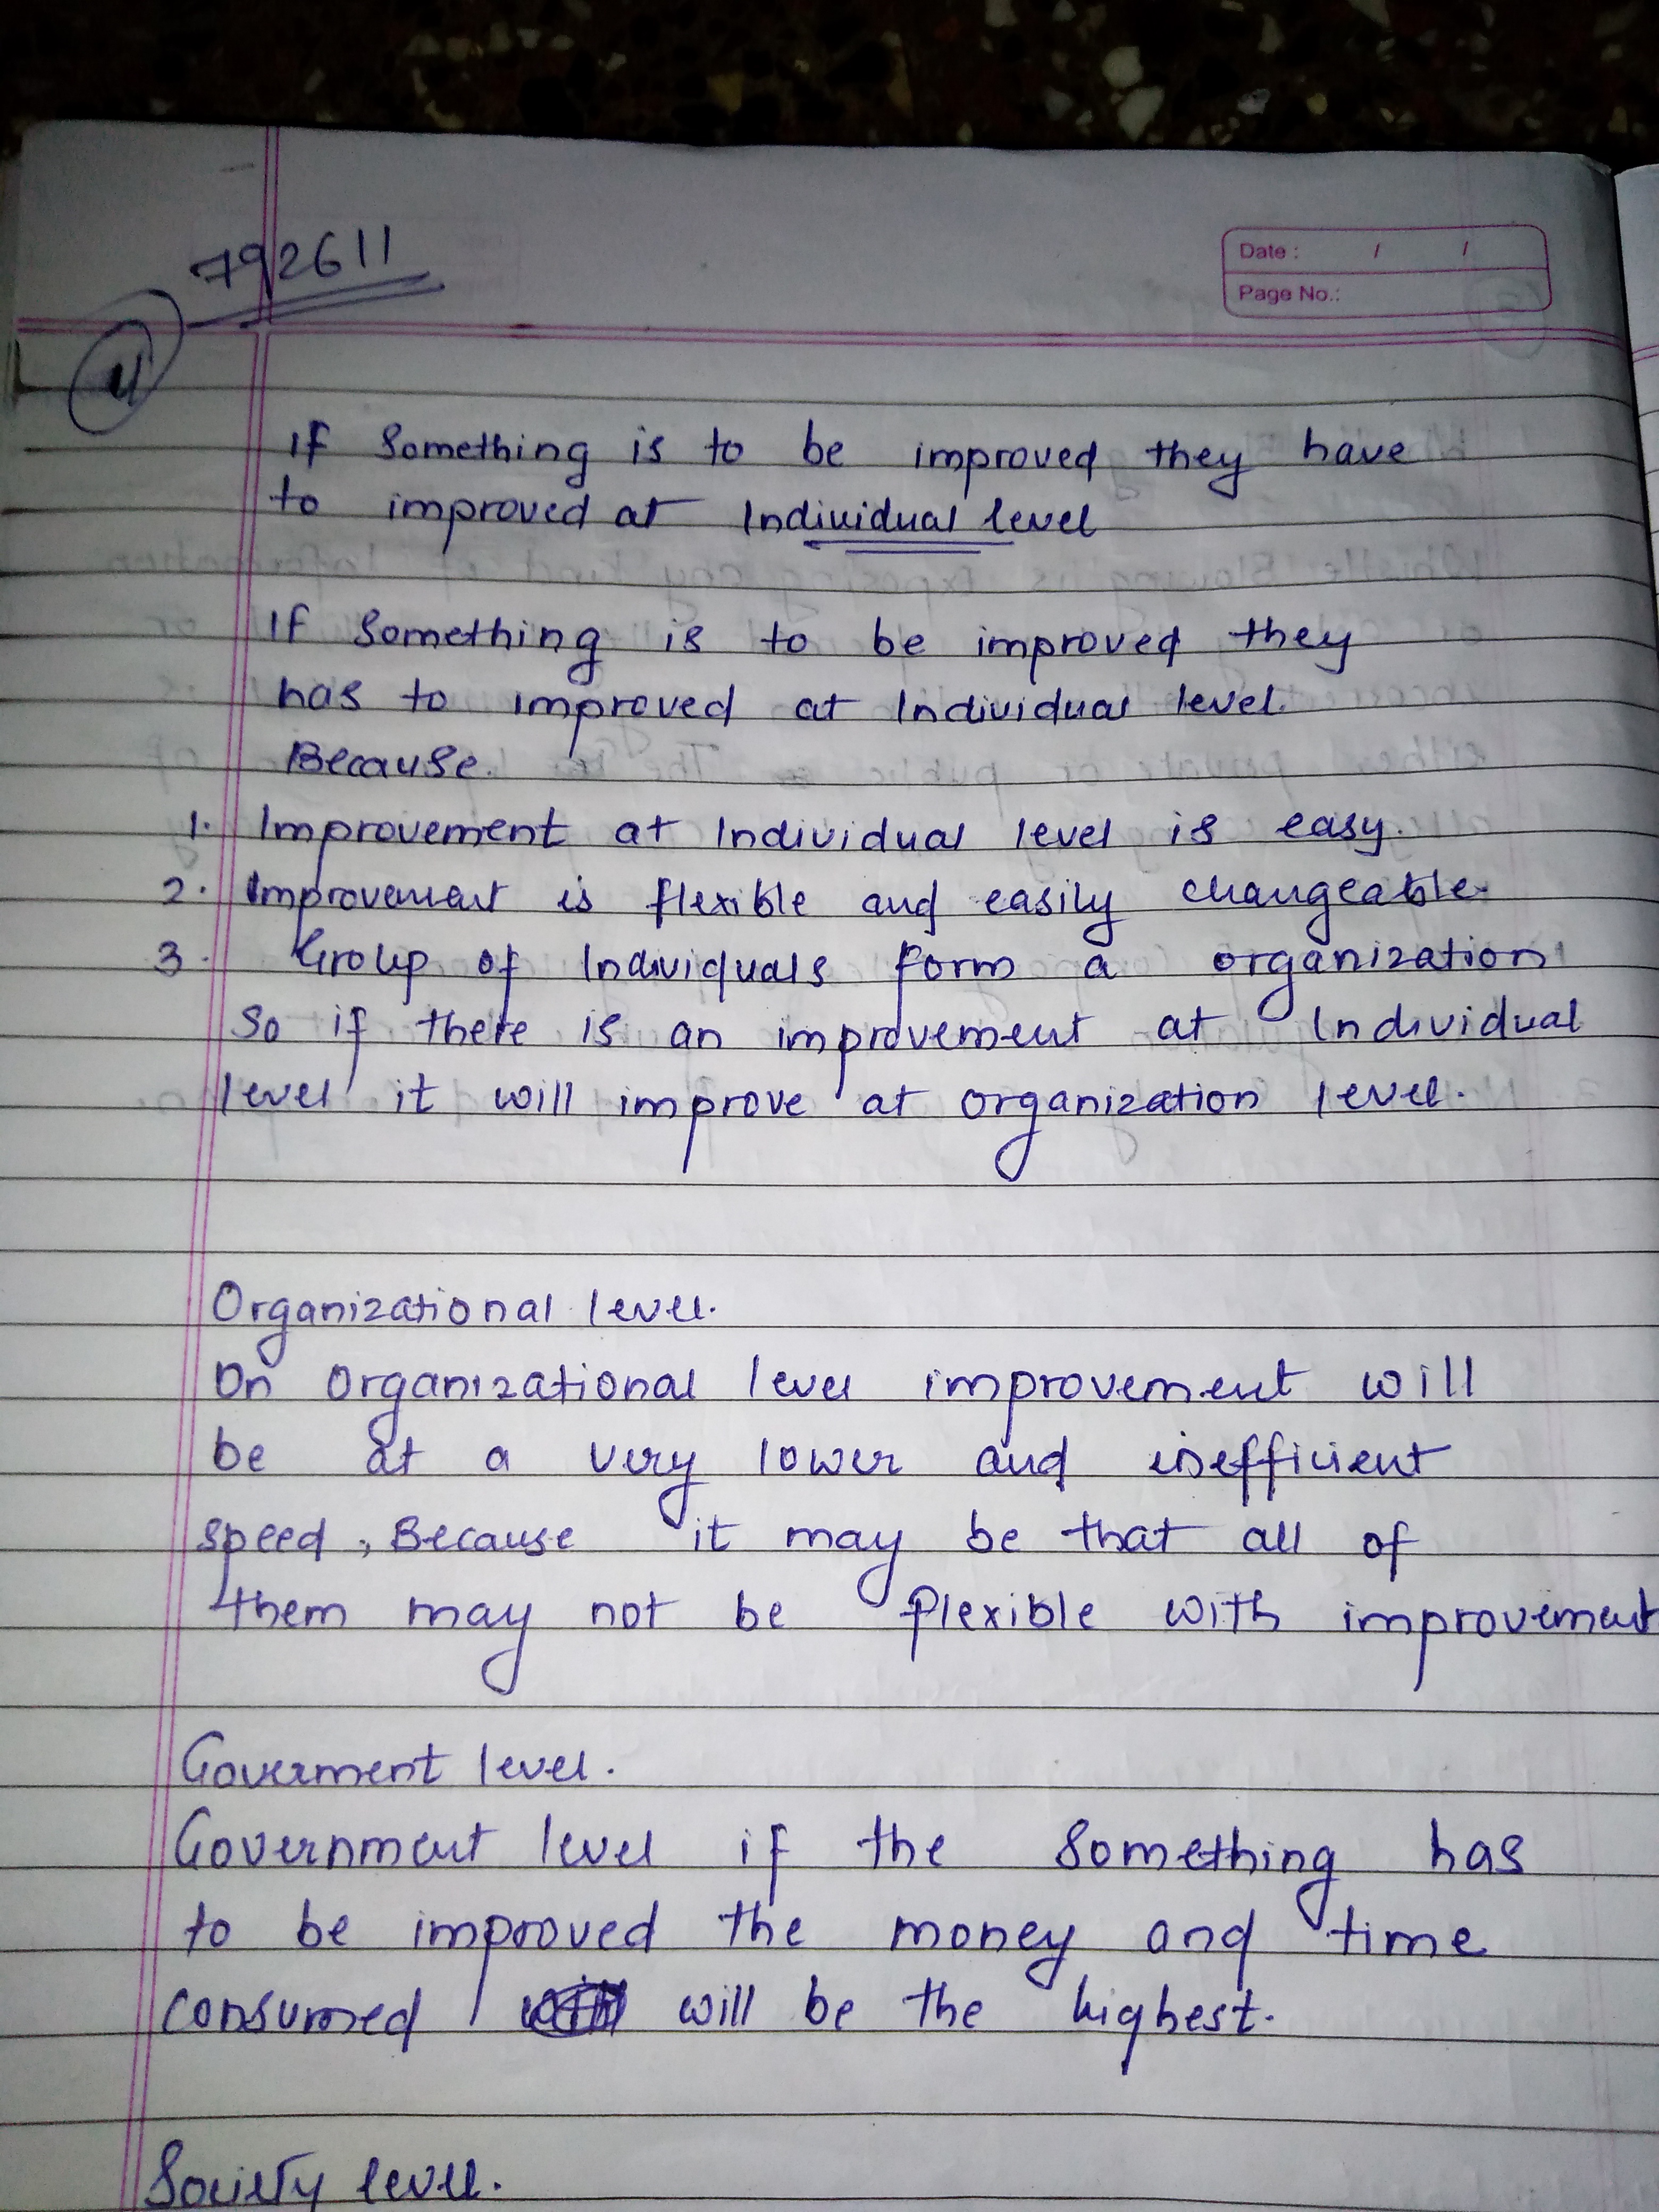 792611
Date : / /
Page No.:
4
If Something is to be improved they have
to improved at Individual level
If Something is to be improved they
has to improved at Individual level.
Because.
1. Improvement at Individual level is easy.
2. Improvement is flexible and easily changeable.
3. Group of Individuals form a organization
So if there is an improvement at Individual
level it will improve at organization level.
Organizational level.
On Organizational level improvement will
be at a very lower and inefficient
speed, Because it may be that all of
them may not be flexible with improvement
Goverment level.
Government level if the Something has
to be improved the money and time
consumed will be the highest.
Society level.